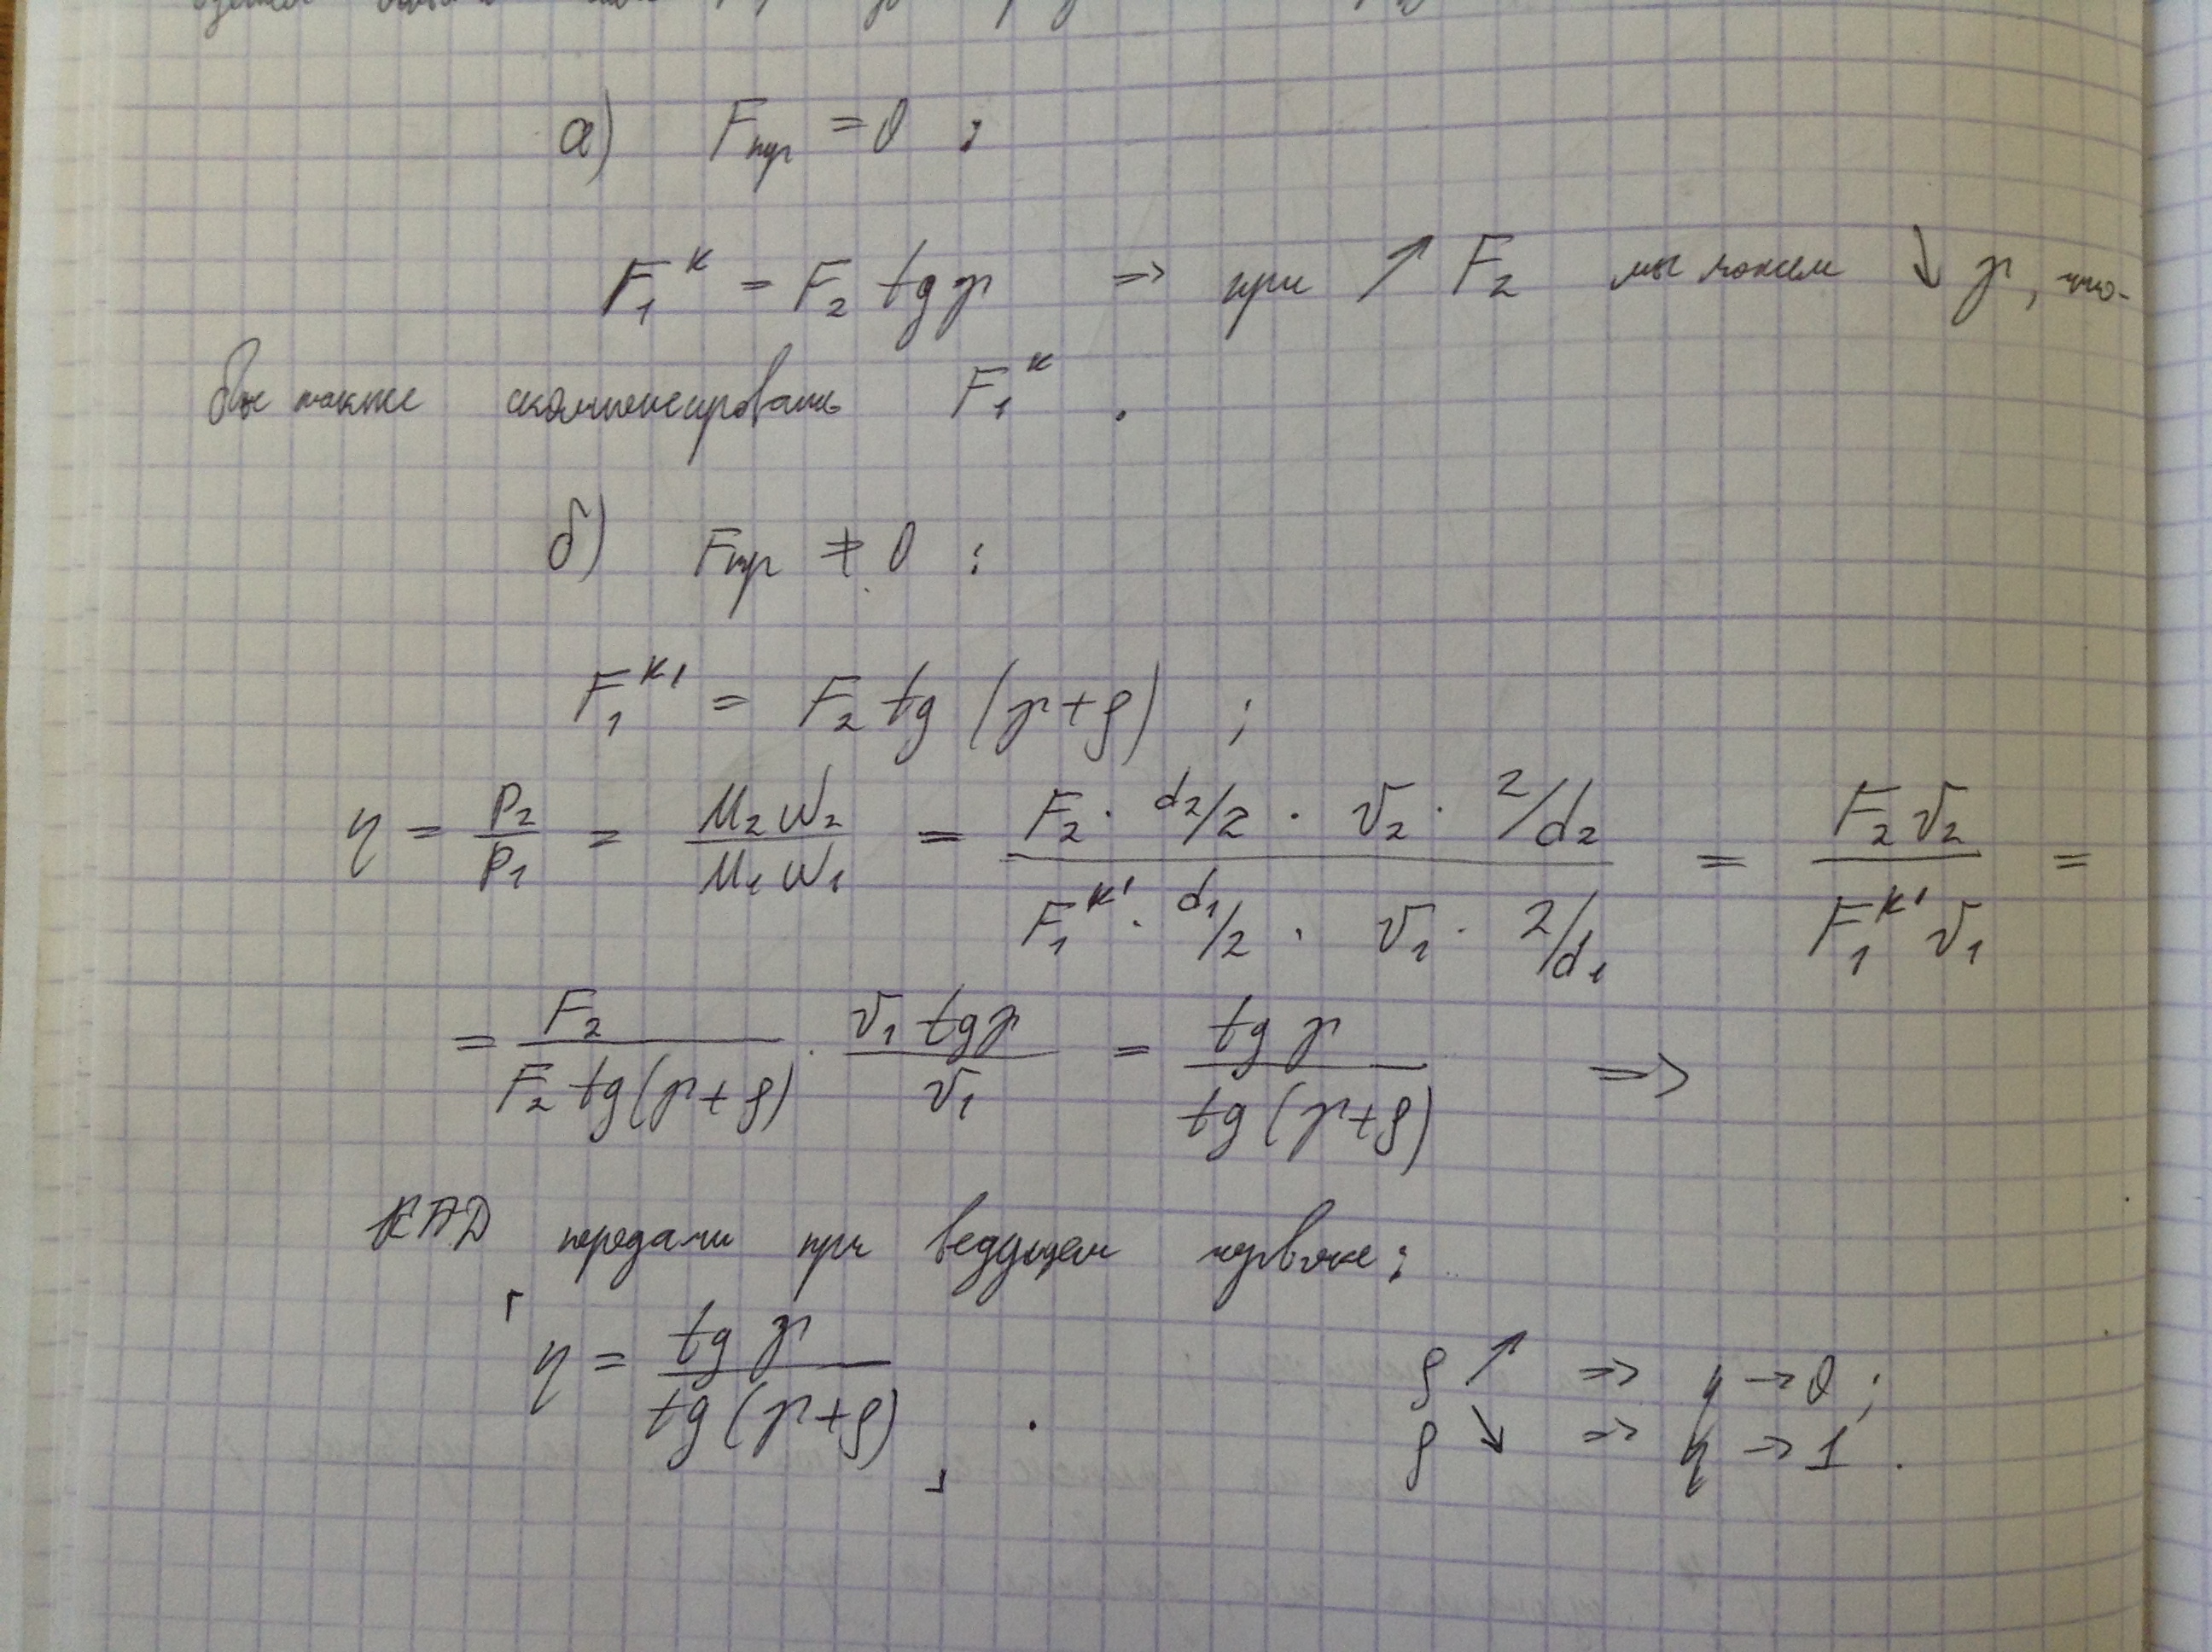 а) Fтр = 0 :
F₁ᴷ = F₂ tg γ => при ↑ F₂ мы можем ↓ γ, что-
бы также скомпенсировать F₁ᴷ .
б) Fтр ≠ 0 :
F₁ᴷ' = F₂ tg (γ+ρ) ;
η = P₂/P₁ = (M₂ω₂)/(M₁ω₁) = (F₂ · d₂/2 · v₂ · 2/d₂)/(F₁ᴷ' · d₁/2 · v₁ · 2/d₁) = (F₂v₂)/(F₁ᴷ'v₁) =
= F₂/(F₂ tg(γ+ρ)) · (v₁ tg γ)/v₁ = (tg γ)/(tg (γ+ρ)) =>
КПД передачи при ведущем червяке:
η = (tg γ)/(tg (γ+ρ)) .
ρ ↑ => η → 0 ;
ρ ↓ => η → 1 .